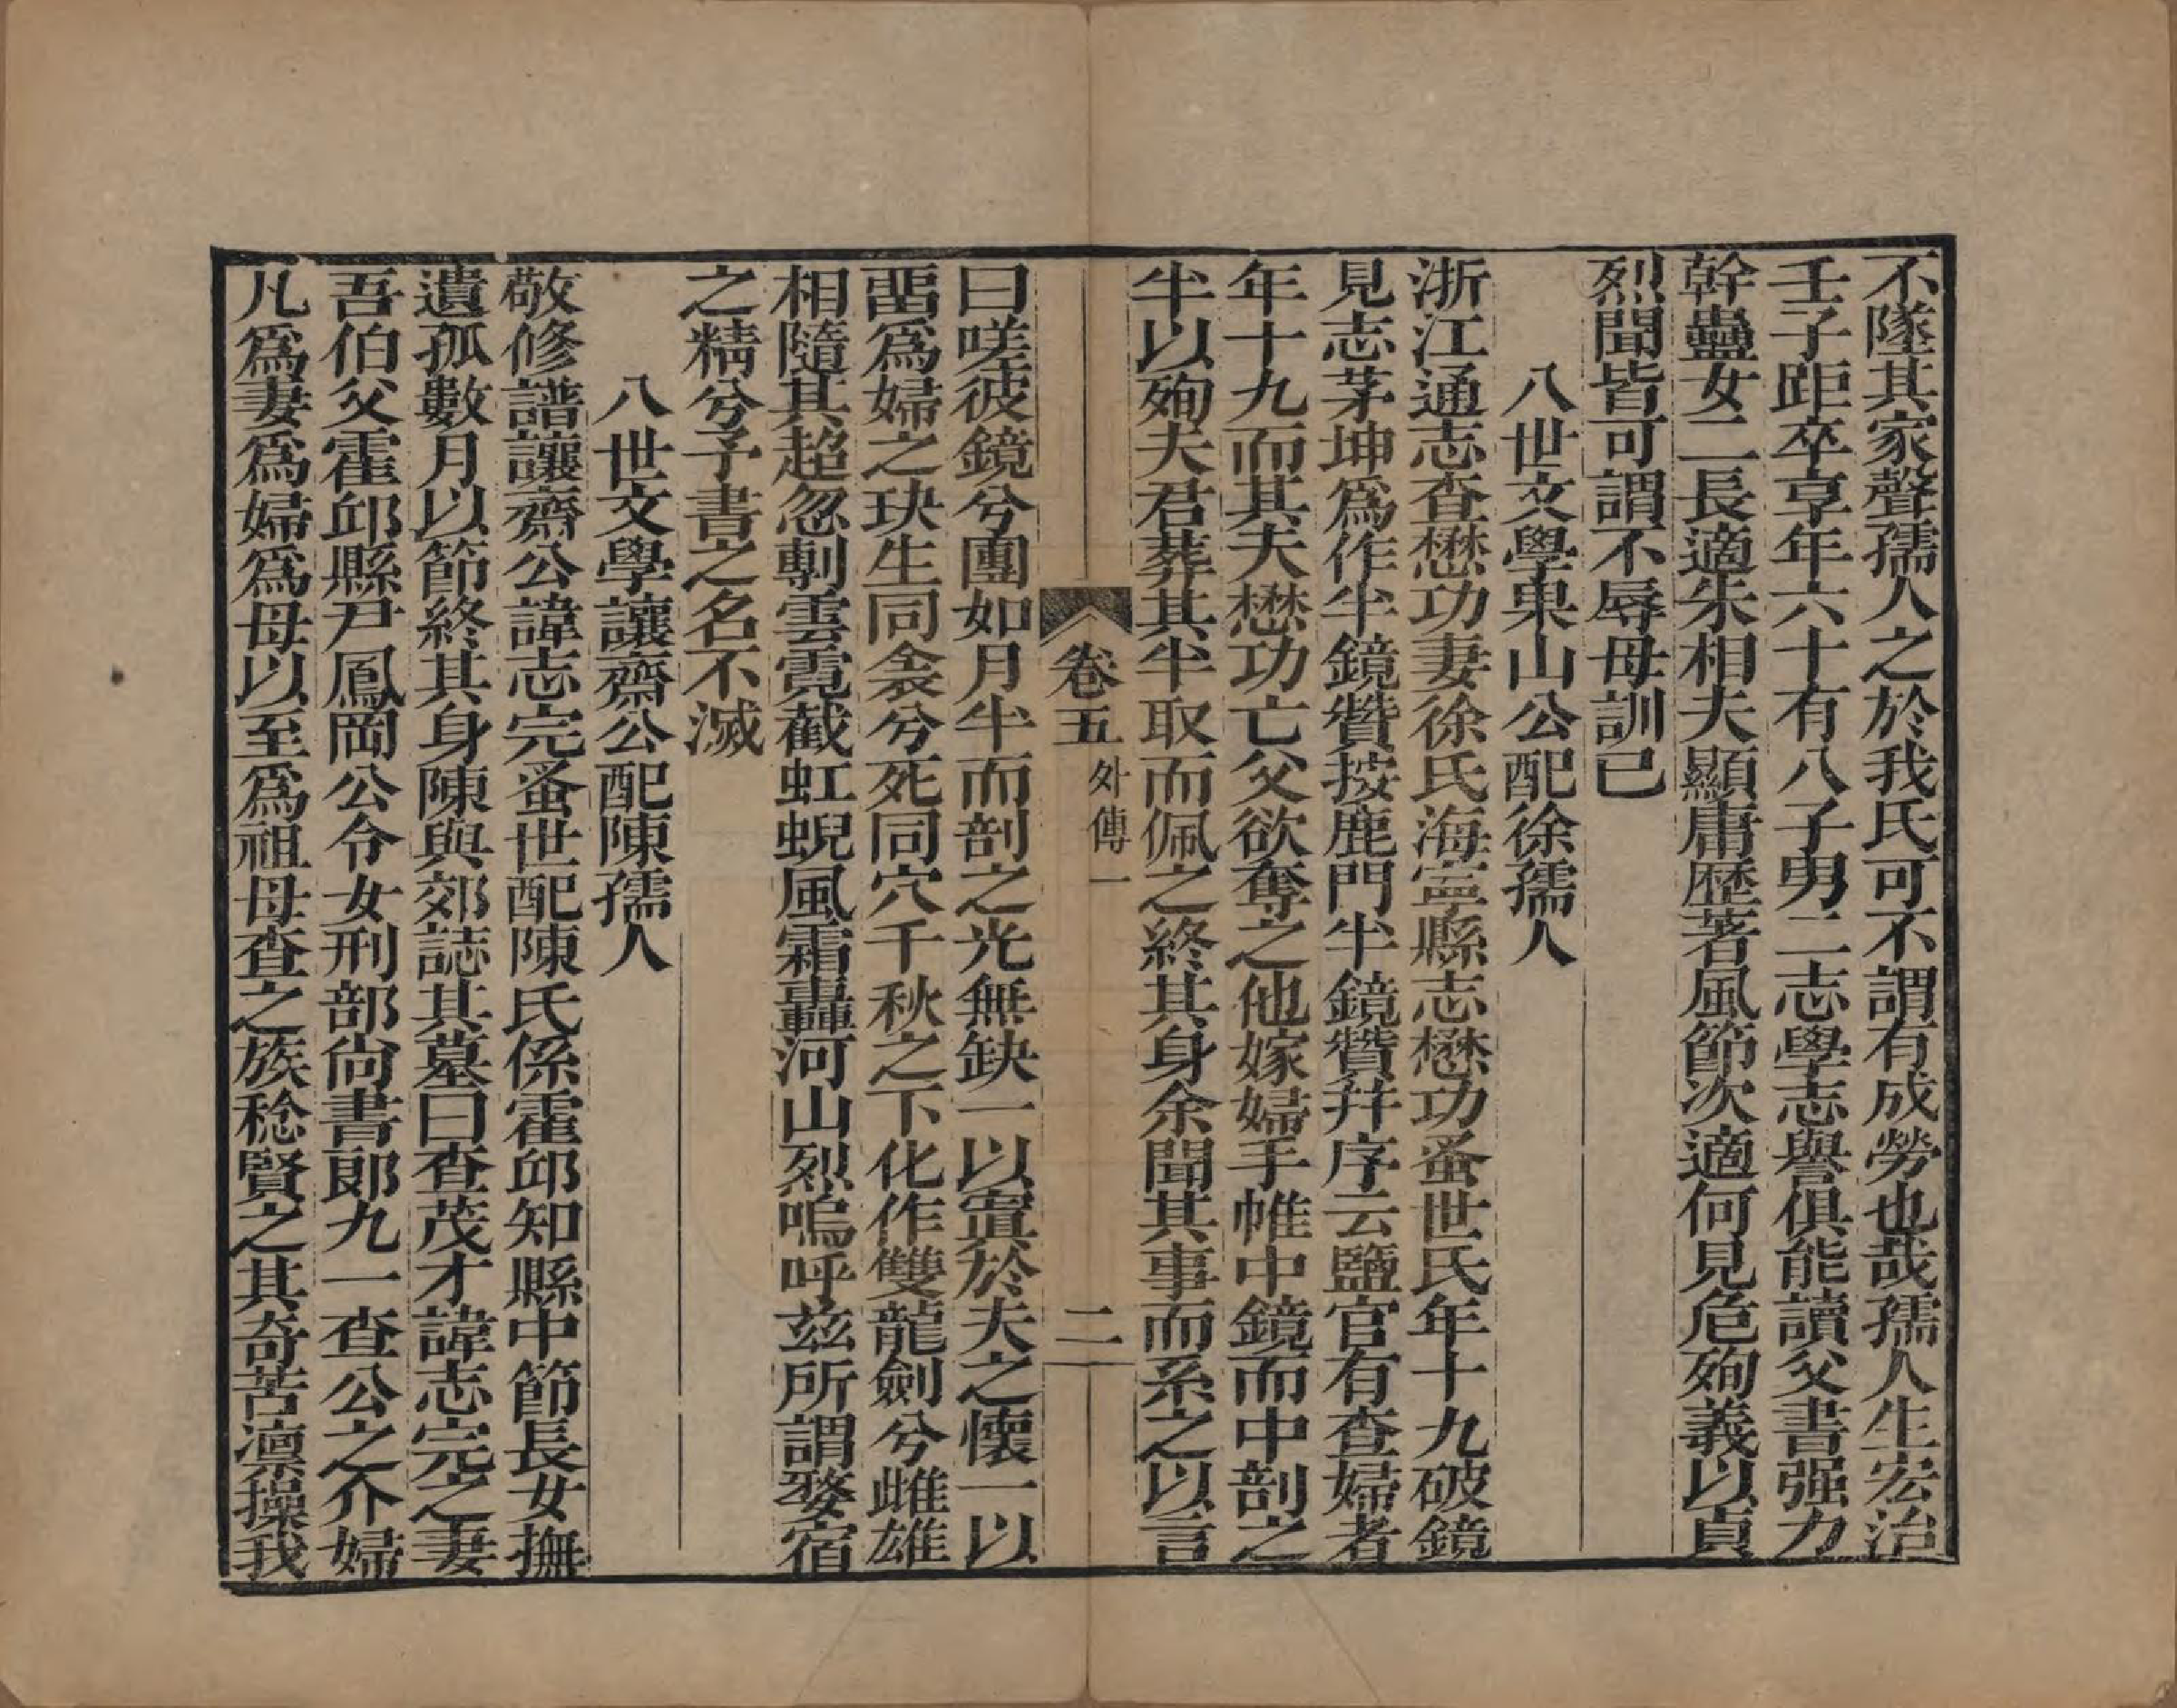 不墜其家聲孺人之於我氏可不謂有成勞也哉孺人生宏治
壬子距卒享年六十有八子男二志學志譽俱能讀父書强力
幹蠱女二長適朱相夫顯庸歴著風節次適何見危殉義以貞
烈聞皆可謂不辱母訓已
八世文學東山公配徐孺人
浙江通志查懋功妻徐氏海寧縣志懋功蚤世氏年十九破鏡
見志茅坤爲作半鏡贊按鹿門半鏡贊幷序云鹽官有查婦者
年十九而其夫懋功亡父欲奪之他嫁婦手帷中鏡而中剖之
半以殉夫君葬其半取而佩之終其身余聞其事而系之以言
卷五 外傳一 二
曰嗟彼鏡兮團如月半而剖之光無缺一以寘於夫之懷一以
畱爲婦之玦生同衾兮死同穴千秋之下化作雙龍劍兮雌雄
相隨其超忽剸雲霓截虹蜺風霜轟河山烈嗚呼兹所謂婺宿
之精兮予書之名不滅
八世文學讓齋公配陳孺人
敬修譜讓齋公諱志完蚤世配陳氏係霍邱知縣中節長女撫
遺孤數月以節終其身陳與郊誌其墓曰查茂才諱志完之妻
吾伯父霍邱縣尹鳳岡公令女刑部尚書郎九一查公之介婦
凡爲妻爲婦爲母以至爲祖母查之族稔賢之其奇苦凛操我